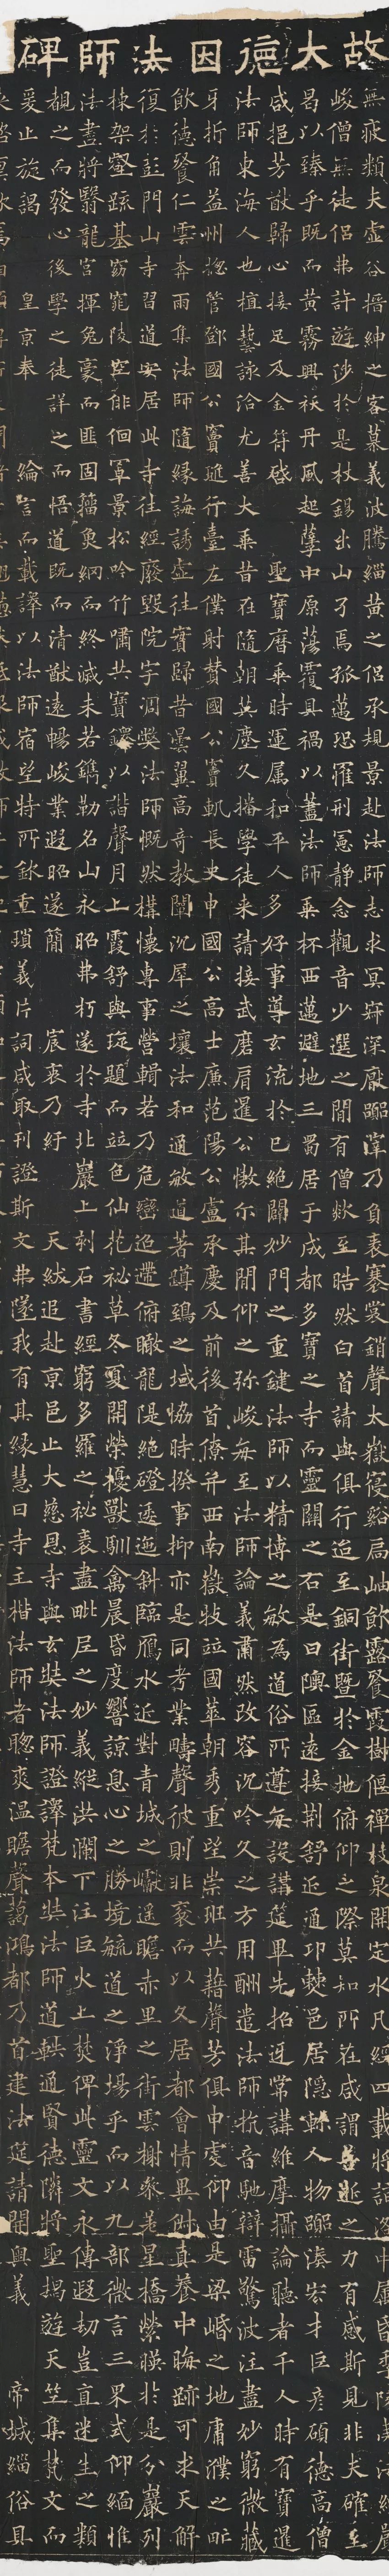 故大德因法師碑
無疵類夫虛谷搢紳之客慕義波騰緇黃之侶承規景赴法師志求冥寂深厭囂滓乃負袠褰裳銷聲太嶽寢谿局岫飲露餐霞樹偃禪枝泉開定水凡經四載將詣洛中屬昏季陵夷法綱嚴
峻僧無徒侶弗許遊涉於是杖錫出山孑焉孤邁恐罹刑憲靜念觀音少選之間有僧欻至皓然白首請與俱行迨至銅街暨於金地俯仰之際莫知所在咸謂善逝之力有感斯見非夫確至
昌以臻乎既而黃霧興祅丹風起孽中原蕩覆具禍以盡法師乘杯西邁避地三蜀居于成都多寶之寺而靈關之右是曰隩區遠接荊舒近通邛僰邑居隱軫人物囂湊宏才巨彥碩德高僧
咸挹芳猷歸心接足及金符啟 聖寶曆乘時運屬和平人多好事導玄流於已絕闢妙門之重鍵法師以精博之敏為道俗所遵每設講筵畢先招迓常講維摩攝論聽者千人時有寶暹
法師東海人也植藝該洽尤善大乘昔在隨朝英塵久播學徒來請接武磨肩暹公傲尒其間仰之彌峻每至法師論義肅然改容沉吟久之方用酬遣法師抗音馳辯雷驚波注盡妙窮微藏
牙折角益州總管鄧國公竇璡行臺左僕射贊國公竇軌長史申國公高士廉范陽公盧承慶及前後首僚并西南嶽牧竝國華朝秀重望崇班共藉聲芳俱申虔仰由是梁崏之地庸濮之甿
飲德餐仁雲奔雨集法師隨緣誨誘虛往實歸昔曇翼高奇教闡沉犀之壤法和通敏道著犢鵄之域恊時揆事抑亦是同考業疇聲彼則非袤而以久居都會情異餝真養中晦跡可求天解
復於彭門山寺習道安居此寺往經廢毀院宇凋弊法師慨然構懷專事營輯若乃危巒迢遰俯瞰龍堤絕磴逶迤斜臨鴈水近對青城之巘遙瞻赤里之街雲榭參差星橋縈暎於是分巖列
棟架壑疏基窈窕陵空徘徊罩景松吟竹嘯共寶鐸以諧聲月上霞舒與琁題而竝色仙花祕草冬夏開榮擾獸馴禽晨昏度響諒息心之勝境毓道之淨場乎而以九部微言三界式仰緬惟
法盡將翳龍宮揮兔豪而匪固籀魚網而終滅未若鐫勒名山永昭弗朽遂於寺北巖上刻石書經窮多羅之祕袠盡毗尼之妙義縱洪瀾下注巨火上焚俾此靈文永傳遐劫豈直迷生之類
覩之而發心後學之徒詳之而悟道既而清猷遠暢峻業遐昭遂簡 宸衷乃紆 天綍追赴京邑止大慈恩寺與玄奘法師證譯梵本奘法師道軼通賢德隣將聖揭遊天竺集梵文而
爰止旋謁 皇京奉 綸言而載譯以法師宿望特所欽重瑣義片詞咸取刊證斯文弗墜我有其緣慧日寺主楷法師者聰爽溫贍聲藹鴻都乃首建法筵請開奧義 帝城緇俗具